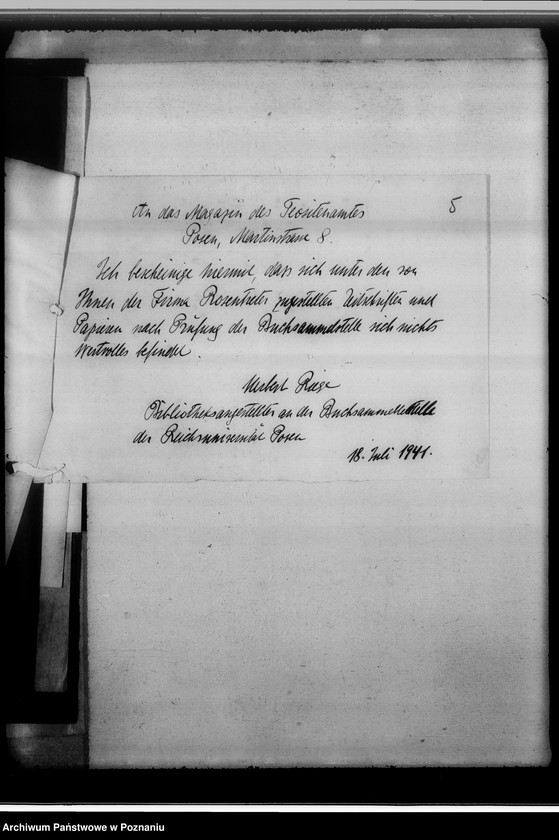 An das Magazin des
5
Posen, Martinstrasse 8.
Ich bescheinige hiermit, dass sich unter den von
Ihnen der Firma Rosentreter zugestellten Zeitschriften und
Papieren nach Prüfung der Buchsammelstelle sich nichts
Wertvolles befindet.
Herbert
Bibliotheksangestellter an der Buchsammelstelle
der Reichsuniversität Posen
18. Juli 1941.
Archiwum Państwowe w Poznaniu